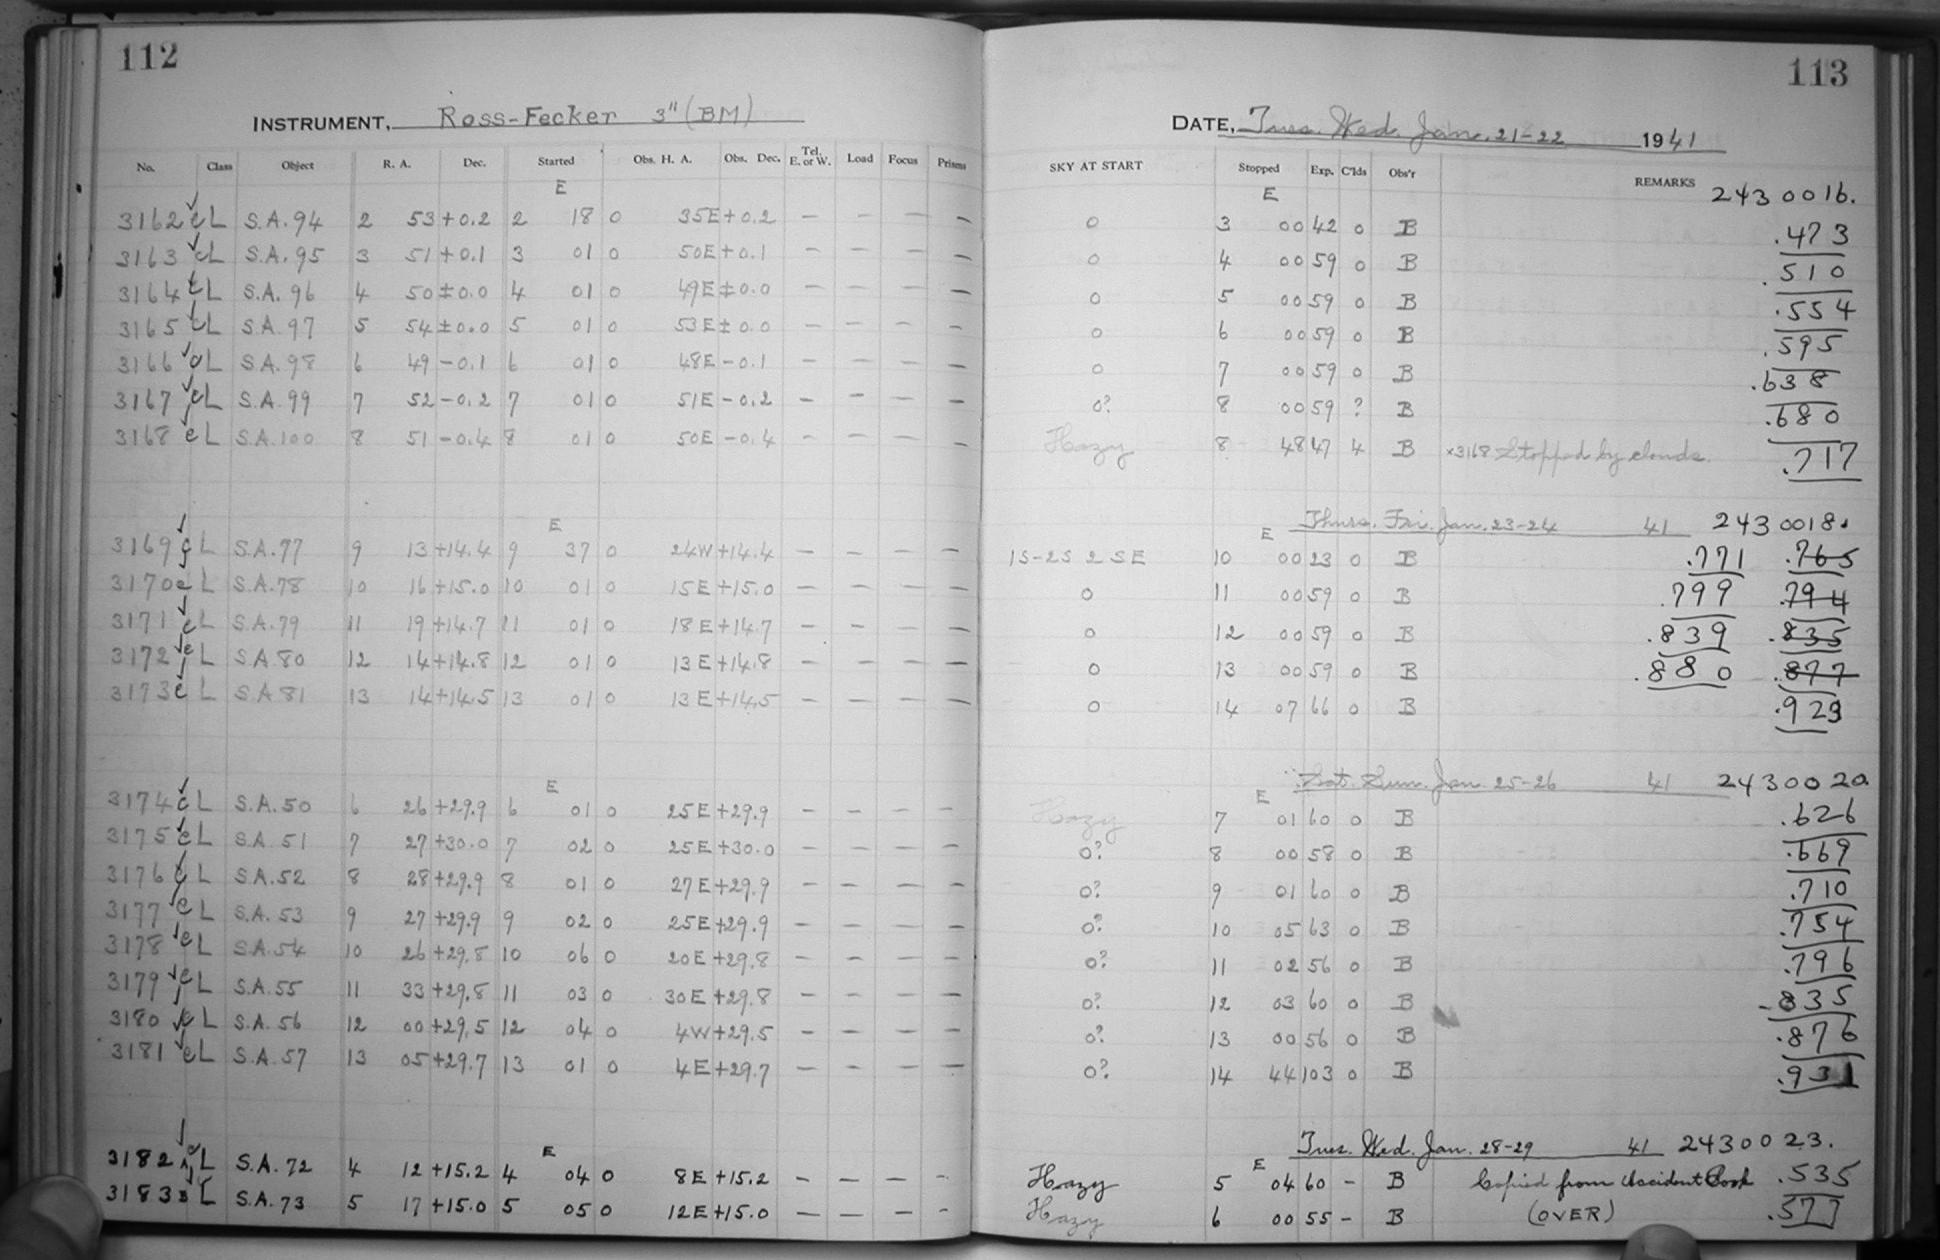 112
INSTRUMENT, Ross-Fecker 3" (BM)
No. Class Object R. A. Dec. Started Obs. H. A. Obs. Dec. Tel. E. or W. Load Focus Prisms
E
3162 ✓ cL S.A. 94 2 53 +0.2 2 18 0 35E +0.2 — — — —
3163 ✓ cL S.A. 95 3 51 +0.1 3 01 0 50E +0.1 — — — —
3164 ✓ cL S.A. 96 4 50 ±0.0 4 01 0 49E ±0.0 — — — —
3165 ✓ cL S.A. 97 5 54 ±0.0 5 01 0 53E ±0.0 — — — —
3166 ✓ cL S.A. 98 6 49 -0.1 6 01 0 48E -0.1 — — — —
3167 ✓ cL S.A. 99 7 52 -0.2 7 01 0 51E -0.2 — — — —
3168 ✓ eL S.A. 100 8 51 -0.4 8 01 0 50E -0.4 — — — —
E
3169 ✓ L S.A. 77 9 13 +14.4 9 37 0 24W +14.4 — — — —
3170 eL S.A. 78 10 16 +15.0 10 01 0 15E +15.0 — — — —
3171 ✓ eL S.A. 79 11 19 +14.7 11 01 0 18E +14.7 — — — —
3172 ✓ eL S.A. 80 12 14 +14.8 12 01 0 13E +14.8 — — — —
3173 ✓ eL S.A. 81 13 14 +14.5 13 01 0 13E +14.5 — — — —
E
3174 ✓ cL S.A. 50 6 26 +29.9 6 01 0 25E +29.9 — — — —
3175 ✓ eL S.A. 51 7 27 +30.0 7 02 0 25E +30.0 — — — —
3176 ✓ L S.A. 52 8 28 +29.9 8 01 0 27E +29.9 — — — —
3177 ✓ eL S.A. 53 9 27 +29.9 9 02 0 25E +29.9 — — — —
3178 ✓ eL S.A. 54 10 26 +29.8 10 06 0 20E +29.8 — — — —
3179 ✓ eL S.A. 55 11 33 +29.8 11 03 0 30E +29.8 — — — —
3180 ✓ eL S.A. 56 12 00 +29.5 12 04 0 4W +29.5 — — — —
3181 ✓ eL S.A. 57 13 05 +29.7 13 01 0 4E +29.7 — — — —
E
3182 ✓ L S.A. 72 4 12 +15.2 4 04 0 8E +15.2 — — — -
3183 L S.A. 73 5 17 +15.0 5 05 0 12E +15.0 — — — -
113
DATE, Tues. Wed. Jan. 21-22 1941
SKY AT START Stopped Exp. C'lds Obs'r REMARKS
E 2430016.
0 3 00 42 0 B .473
0 4 00 59 0 B .510
0 5 00 59 0 B .554
0 6 00 59 0 B .595
0 7 00 59 0 B .638
0? 8 00 59 ? B .680
Hazy 8 48 47 4 B ×3168 Stopped by clouds. .717
Thurs. Fri. Jan. 23-24 41 2430018.
E
1S-2S 2 SE 10 00 23 0 B .771 .765
0 11 00 59 0 B .799 .794
0 12 00 59 0 B .839 .835
0 13 00 59 0 B .880 .877
0 14 07 66 0 B .923
Sat. Sun. Jan. 25-26 41 2430020.
E
Hazy 7 01 60 0 B .626
0? 8 00 58 0 B .669
0? 9 01 60 0 B .710
0? 10 05 63 0 B .754
0? 11 02 56 0 B .796
0? 12 03 60 0 B .835
0? 13 00 56 0 B .876
0? 14 44 103 0 B .931
Tues. Wed. Jan. 28-29 41 2430023.
E
Hazy 5 04 60 - B Copied from Accident Book .535
Hazy 6 00 55 - B (OVER) .577